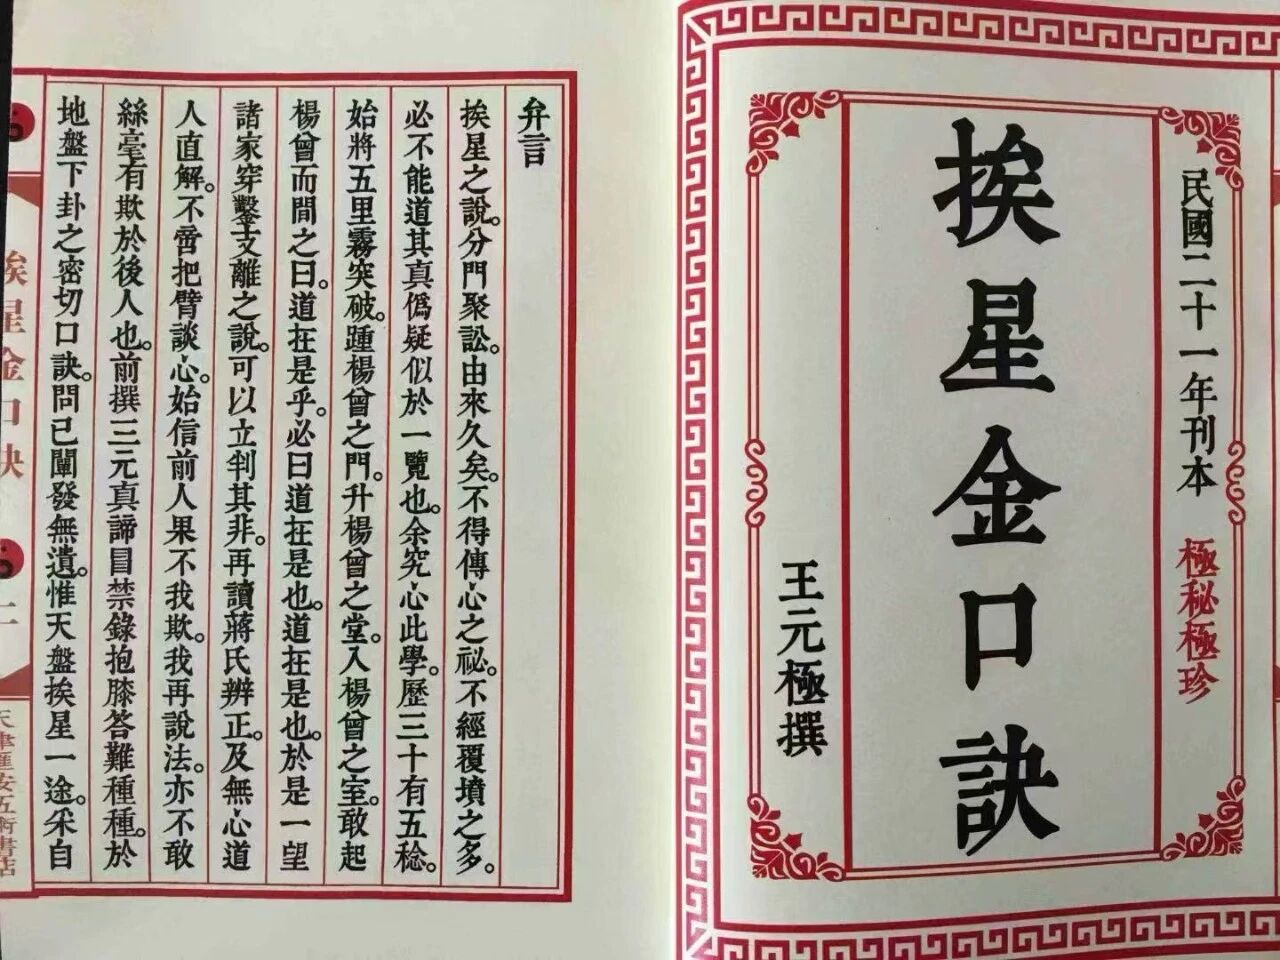 民國二十一年刊本
極秘極珍
挨星金口訣
王元極撰
弁言
挨星之說。分門聚訟。由來久矣。不得傳心之祕。不經覆墳之多。
必不能道其真僞疑似於一覽也。余究心此學。歷三十有五稔。
始將五里霧突破。踵楊曾之門。升楊曾之堂。入楊曾之室。敢起
楊曾而間之曰。道在是乎。必曰道在是也。道在是也。於是一望
諸家穿鑿支離之說。可以立判其非。再讀蔣氏辨正。及無心道
人直解。不啻把臂談心。始信前人果不我欺。我再說法。亦不敢
絲毫有欺於後人也。前撰三元真諦冒禁錄抱膝答難種種。於
地盤下卦之密切口訣。問已闡發無遺。惟天盤挨星一途。采自
挨星金口訣
一
天津匯安五術書店